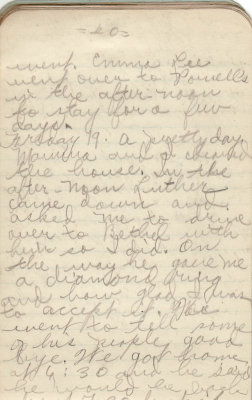 =20=
went. Emma Lee
went over to Powells
in the after-noon
to stay for a few
days.
Friday 19. A pretty day,
Mamma and I cleaned
the house. In the
after-noon Luther
came down and
asked me to drive
over to Bethel with
him so I did. On
the way he gave me
a diamond ring
and how glad I was
to accept it. We
went to tell some
of his people good
bye. We got home
at 4:30 and he said
he would be back